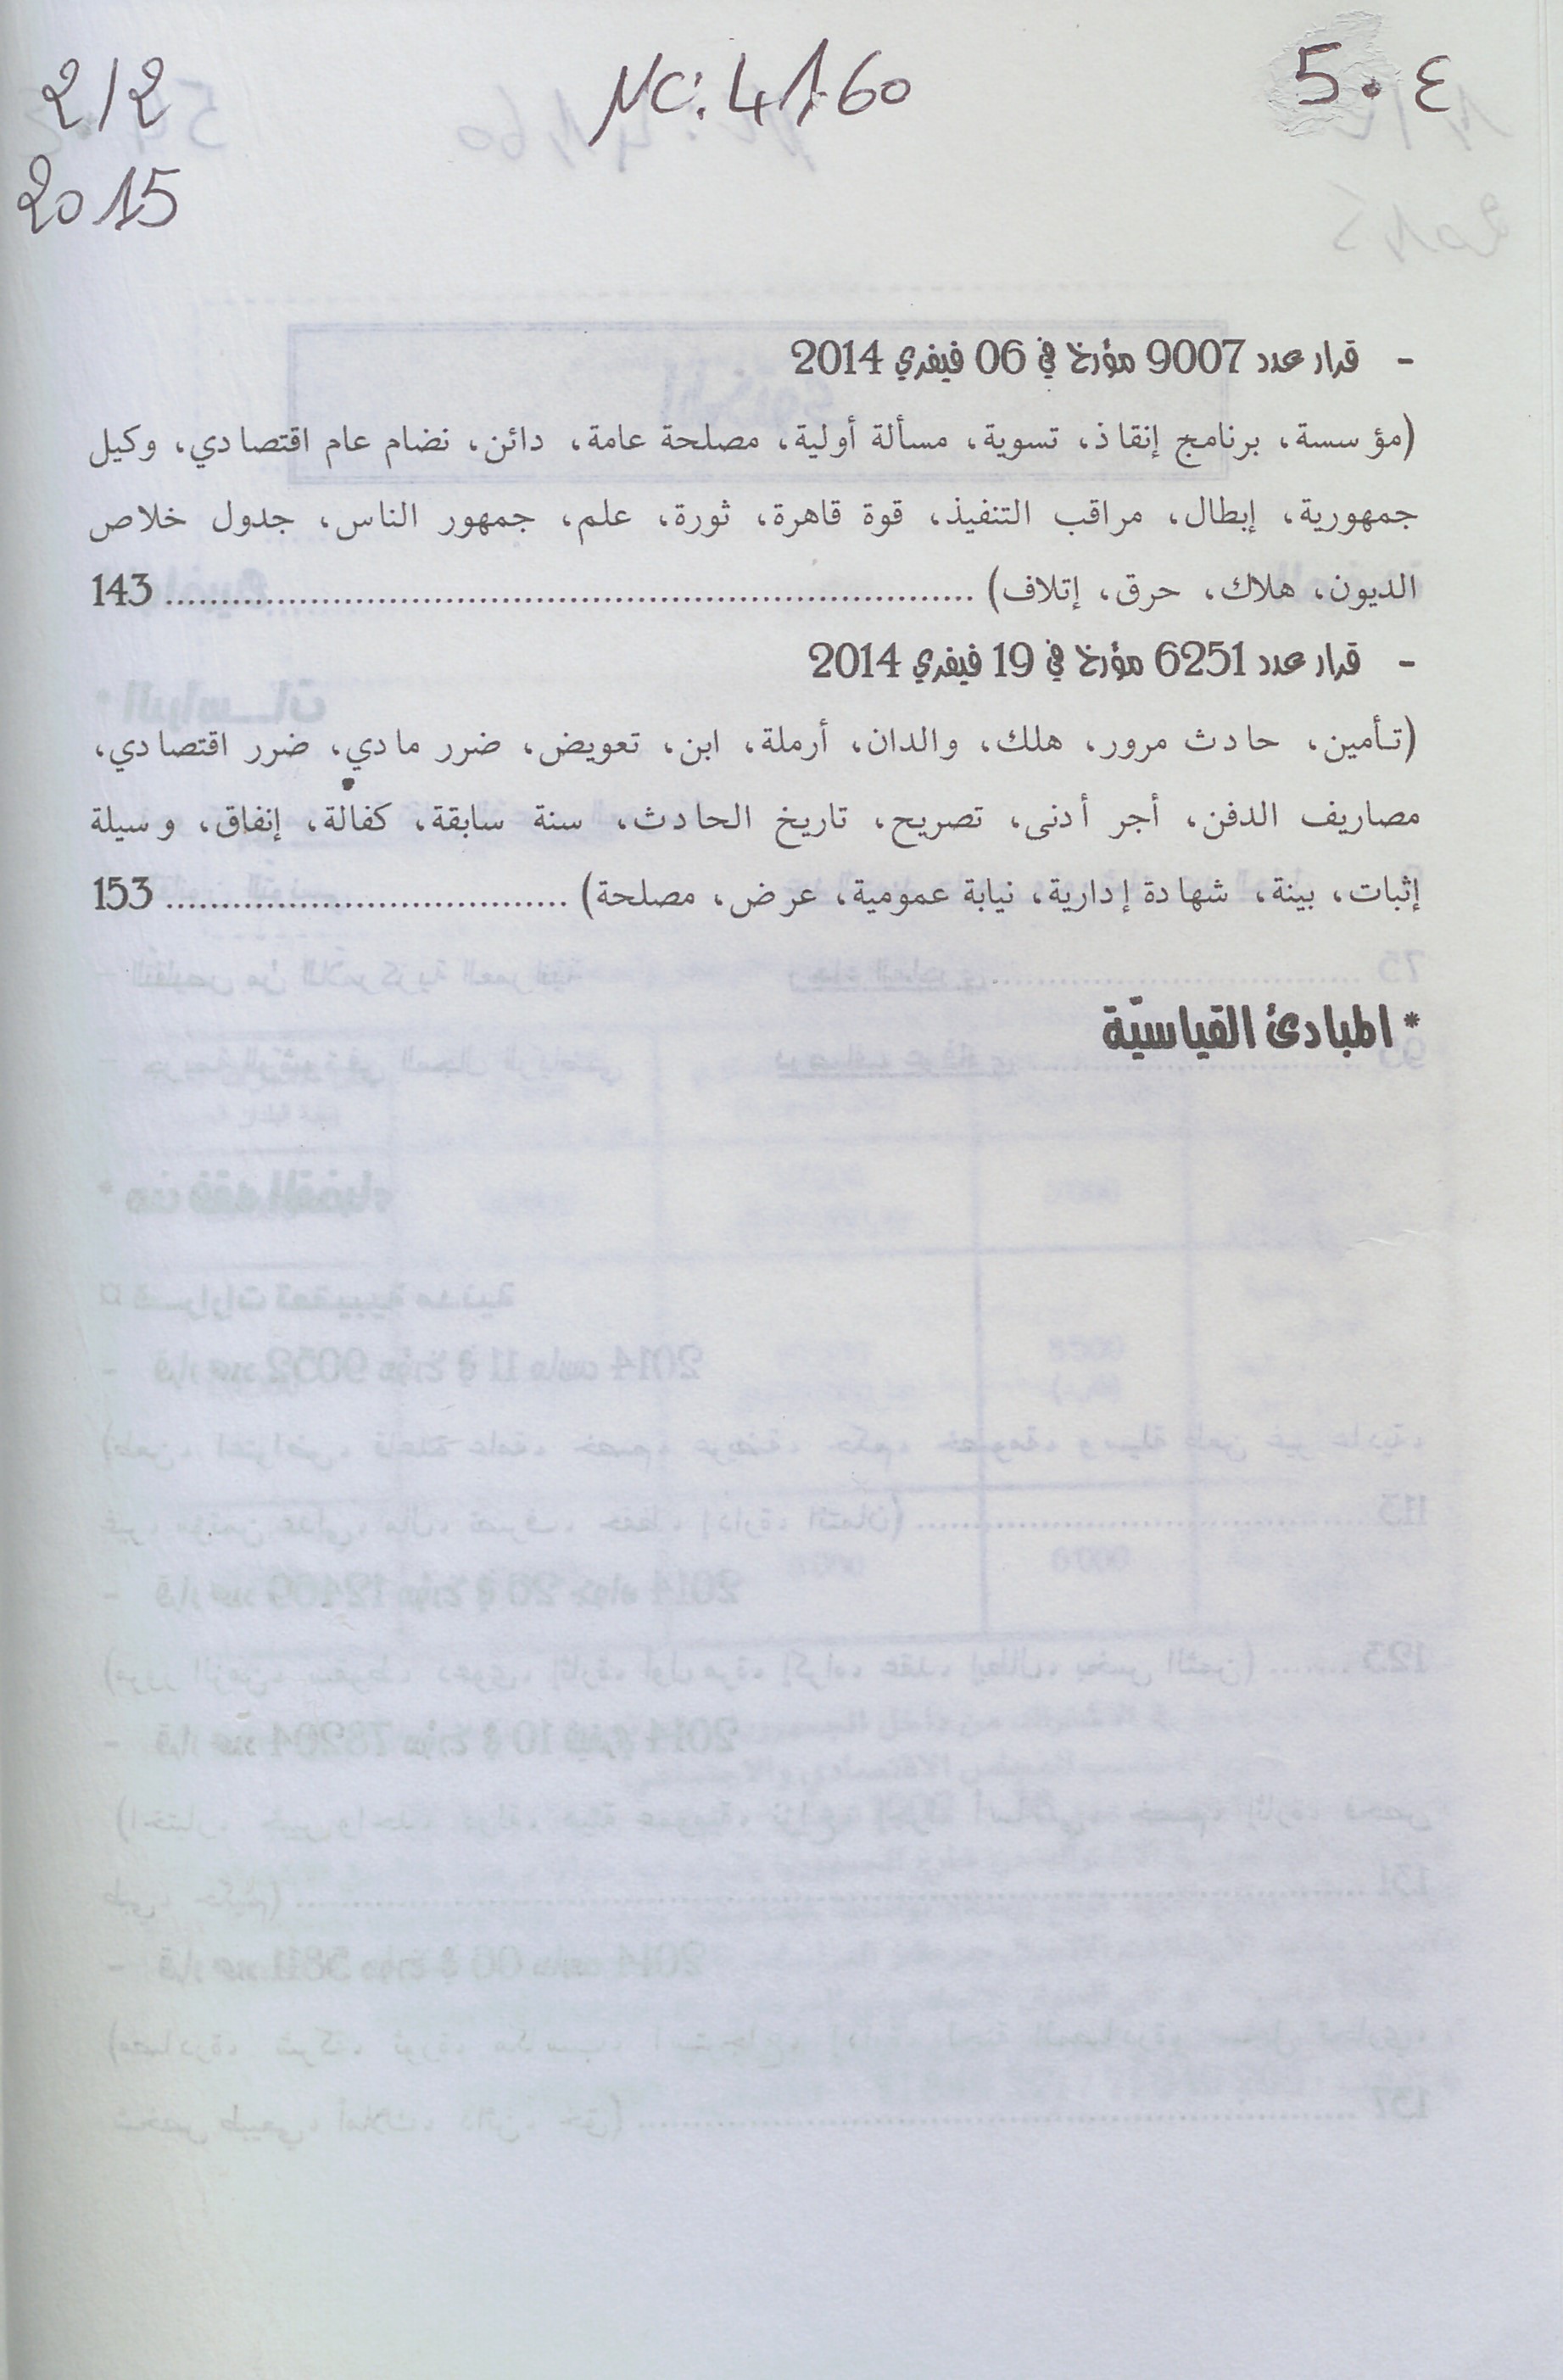 5.٤
NC: 4160
2/2
2015
- قرار عدد 9007 مؤرخ في 06 فيفري 2014
(مؤسسة، برنامج إنقاذ، تسوية، مسألة أولية، مصلحة عامة، دائن، نضام عام اقتصادي، وكيل
جمهورية، إبطال، مراقب التنفيذ، قوة قاهرة، ثورة، علم، جمهور الناس، جدول خلاص
الديون، هلاك، حرق، إتلاف) ........................................................................ 143
- قرار عدد 6251 مؤرخ في 19 فيفري 2014
(تأمين، حادث مرور، هلك، والدان، أرملة، ابن، تعويض، ضرر مادي، ضرر اقتصادي،
مصاريف الدفن، أجر أدنى، تصريح، تاريخ الحادث، سنة سابقة، كفالة، إنفاق، وسيلة
إثبات، بينة، شهادة إدارية، نيابة عمومية، عرض، مصلحة) .................................... 153
* المبادئ القياسيّة